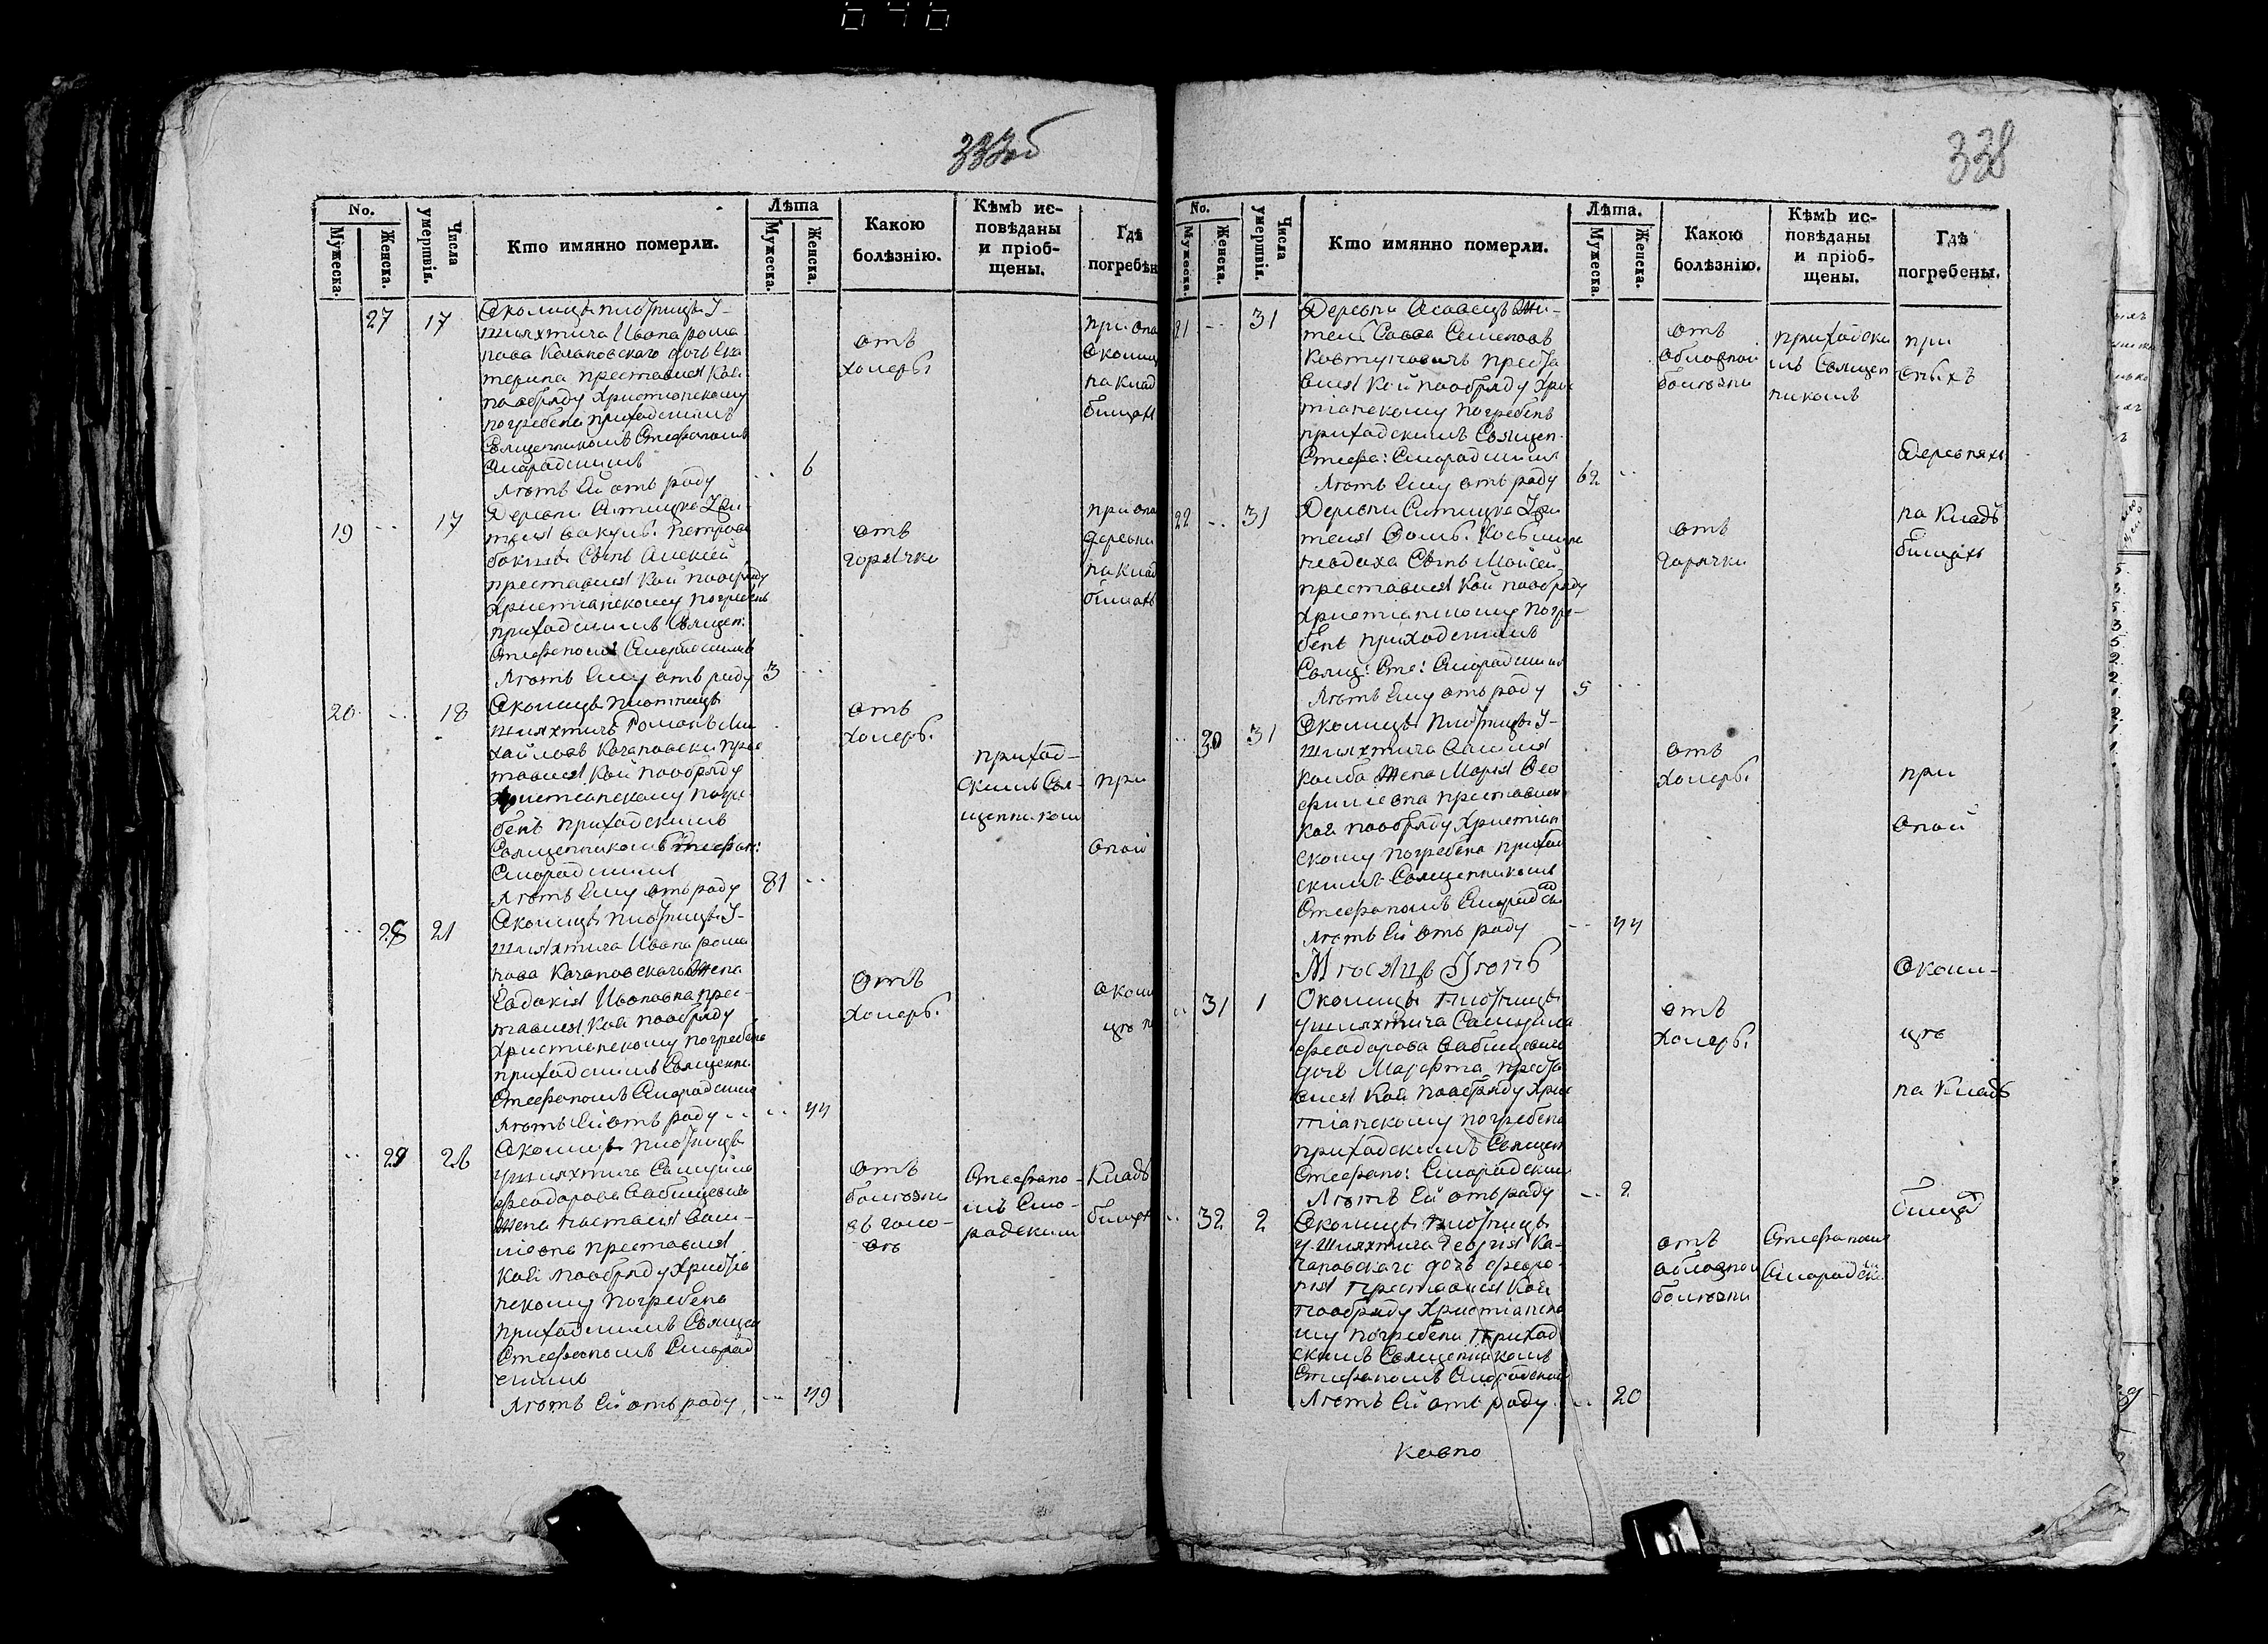 333об
No.
Мужеска.
Женска.
Числа умертвія.
Кто имянно померли.
Лѣта
Мужеска.
Женска.
Какою болѣзнію.
Кѣмъ исповѣданы и пріобщены.
Гдѣ погребѣн
27 17
шляхтича Ивана Рома
нова Качановскаго дочь Ека
терина преставися кая
по обряду Христіанскому
погребена приходскимъ
Священникомъ Стефаномъ
Сморадскимъ
Лѣтъ Ей отъ роду .. 6
отъ
холеры
при она
околиц
на клад
бищахъ
19 .. 17
Петрова
Сынъ Алексѣй
преставися кой по обряду
Христіанскому погребенъ
приходскимъ Священ:
Стефаномъ Сморадскимъ
Лѣтъ Ему отъ роду 3 ..
отъ
горячки
при она
деревни
на клад
бищахъ
20 .. 18
Околицы
шляхтичъ Романъ Ми
хайловъ Качановски прес
тавися кой по обряду
Христіанскому погре
бенъ приходскимъ
Священникомъ Стефан:
Сморадскимъ
Лѣтъ Ему отъ роду 81 ..
отъ
холеры
приход-
скимъ Свя-
щенникомъ
при
оной
.. 28 21
шляхтича Ивана Рома
нова Качановскаго Жена
Евдокія Ивановна прес-
тавися кая по обряду
Христіанскому погребена
приходскимъ Священни
Стефаномъ Сморадскимъ
Лѣтъ Ей отъ роду .. .. 44
отъ
холеры
околи
цѣ н
.. 29 26
у шляхтича Самуила
Феодорова Савицкевича
Жена Настасія
преставися
кая по обряду Христіа
нскому погребена
приходскимъ Священ
Стефаномъ Сморад
скимъ
Лѣтъ Ей отъ роду .. 49
отъ
болѣзни
въ голо-
вѣ
Стефано-
мъ Смо-
радскимъ
Кладъ
бищах
338
No.
Мужеска.
Женска.
Числа умертвія.
Кто имянно померли.
Лѣта.
Мужеска.
Женска.
Какою болѣзнію.
Кѣмъ исповѣданы и пріобщены.
Гдѣ погребены.
21 .. 31
тель Савва Семеновъ
преста
вися кой по обряду Хрис
тіанскому погребенъ
приходскимъ Священ
Стефа: Сморадскимъ
Лѣтъ Ему отъ роду 62 ..
отъ
обложной
болѣзни
приходски
мъ Священ
никомъ
при
оныхъ
Деревняхъ
22 .. 31
Сынъ Мойсей
преставися кой по обряду
Христіанскому погре-
бенъ приходскимъ
Свящ: Сте: Сморадским
Лѣтъ Ему отъ роду 5 ..
отъ
горячки
на Кладъ
бищахъ
.. 30 31
шляхтича
Жена Марія Фео
преставися
кая по обряду Христіан
скому погребена приход
скимъ Священникомъ
Стефаномъ Сморадски
Лѣтъ Ей отъ роду .. 44
отъ
холеры
при
оной
Мѣсяцъ Іюнь
.. 31 1
у шляхтича Самуила
Феодорова Савицкевича
дочь Марфта преста
вися кая по обряду Хрис
тіанскому погребена
приходскимъ Священ
Стефано: Сморадским
Лѣтъ Ей отъ роду .. 2
отъ
холеры
Околи-
цѣ
на Кладъ
бищах
.. 32 2
у шляхтича Георгія Ка-
чановскаго дочь Февро
нія преставися кая
по обряду Христіанско
му погребена приход
скимъ Священникомъ
Стефаномъ Сморадским
Лѣтъ Ей отъ роду .. 20
отъ
обложной
болѣзни
Стефаномъ
Сморадски